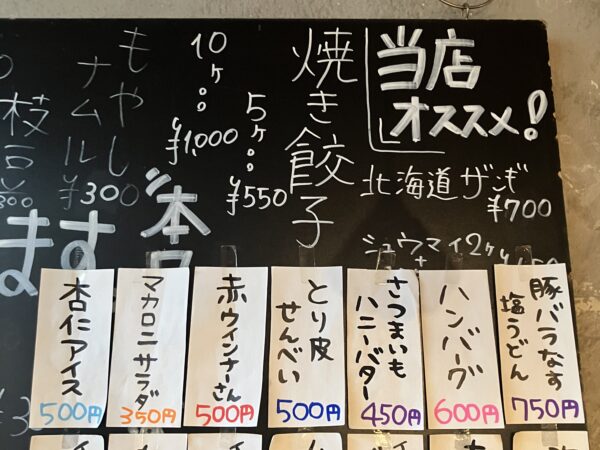 当店
オススメ!
北海道ザンギ
¥700
シュウマイ2ケ
焼き餃子
5ケ…¥550
10ケ…¥1,000
もやし
ナムル
¥300
枝豆
ます
豚バラなす
塩うどん
750円
ハンバーグ
600円
さつまいも
ハニーバター
450円
とり皮
せんべい
500円
赤ウインナーさん
500円
マカロニサラダ
350円
杏仁アイス
500円